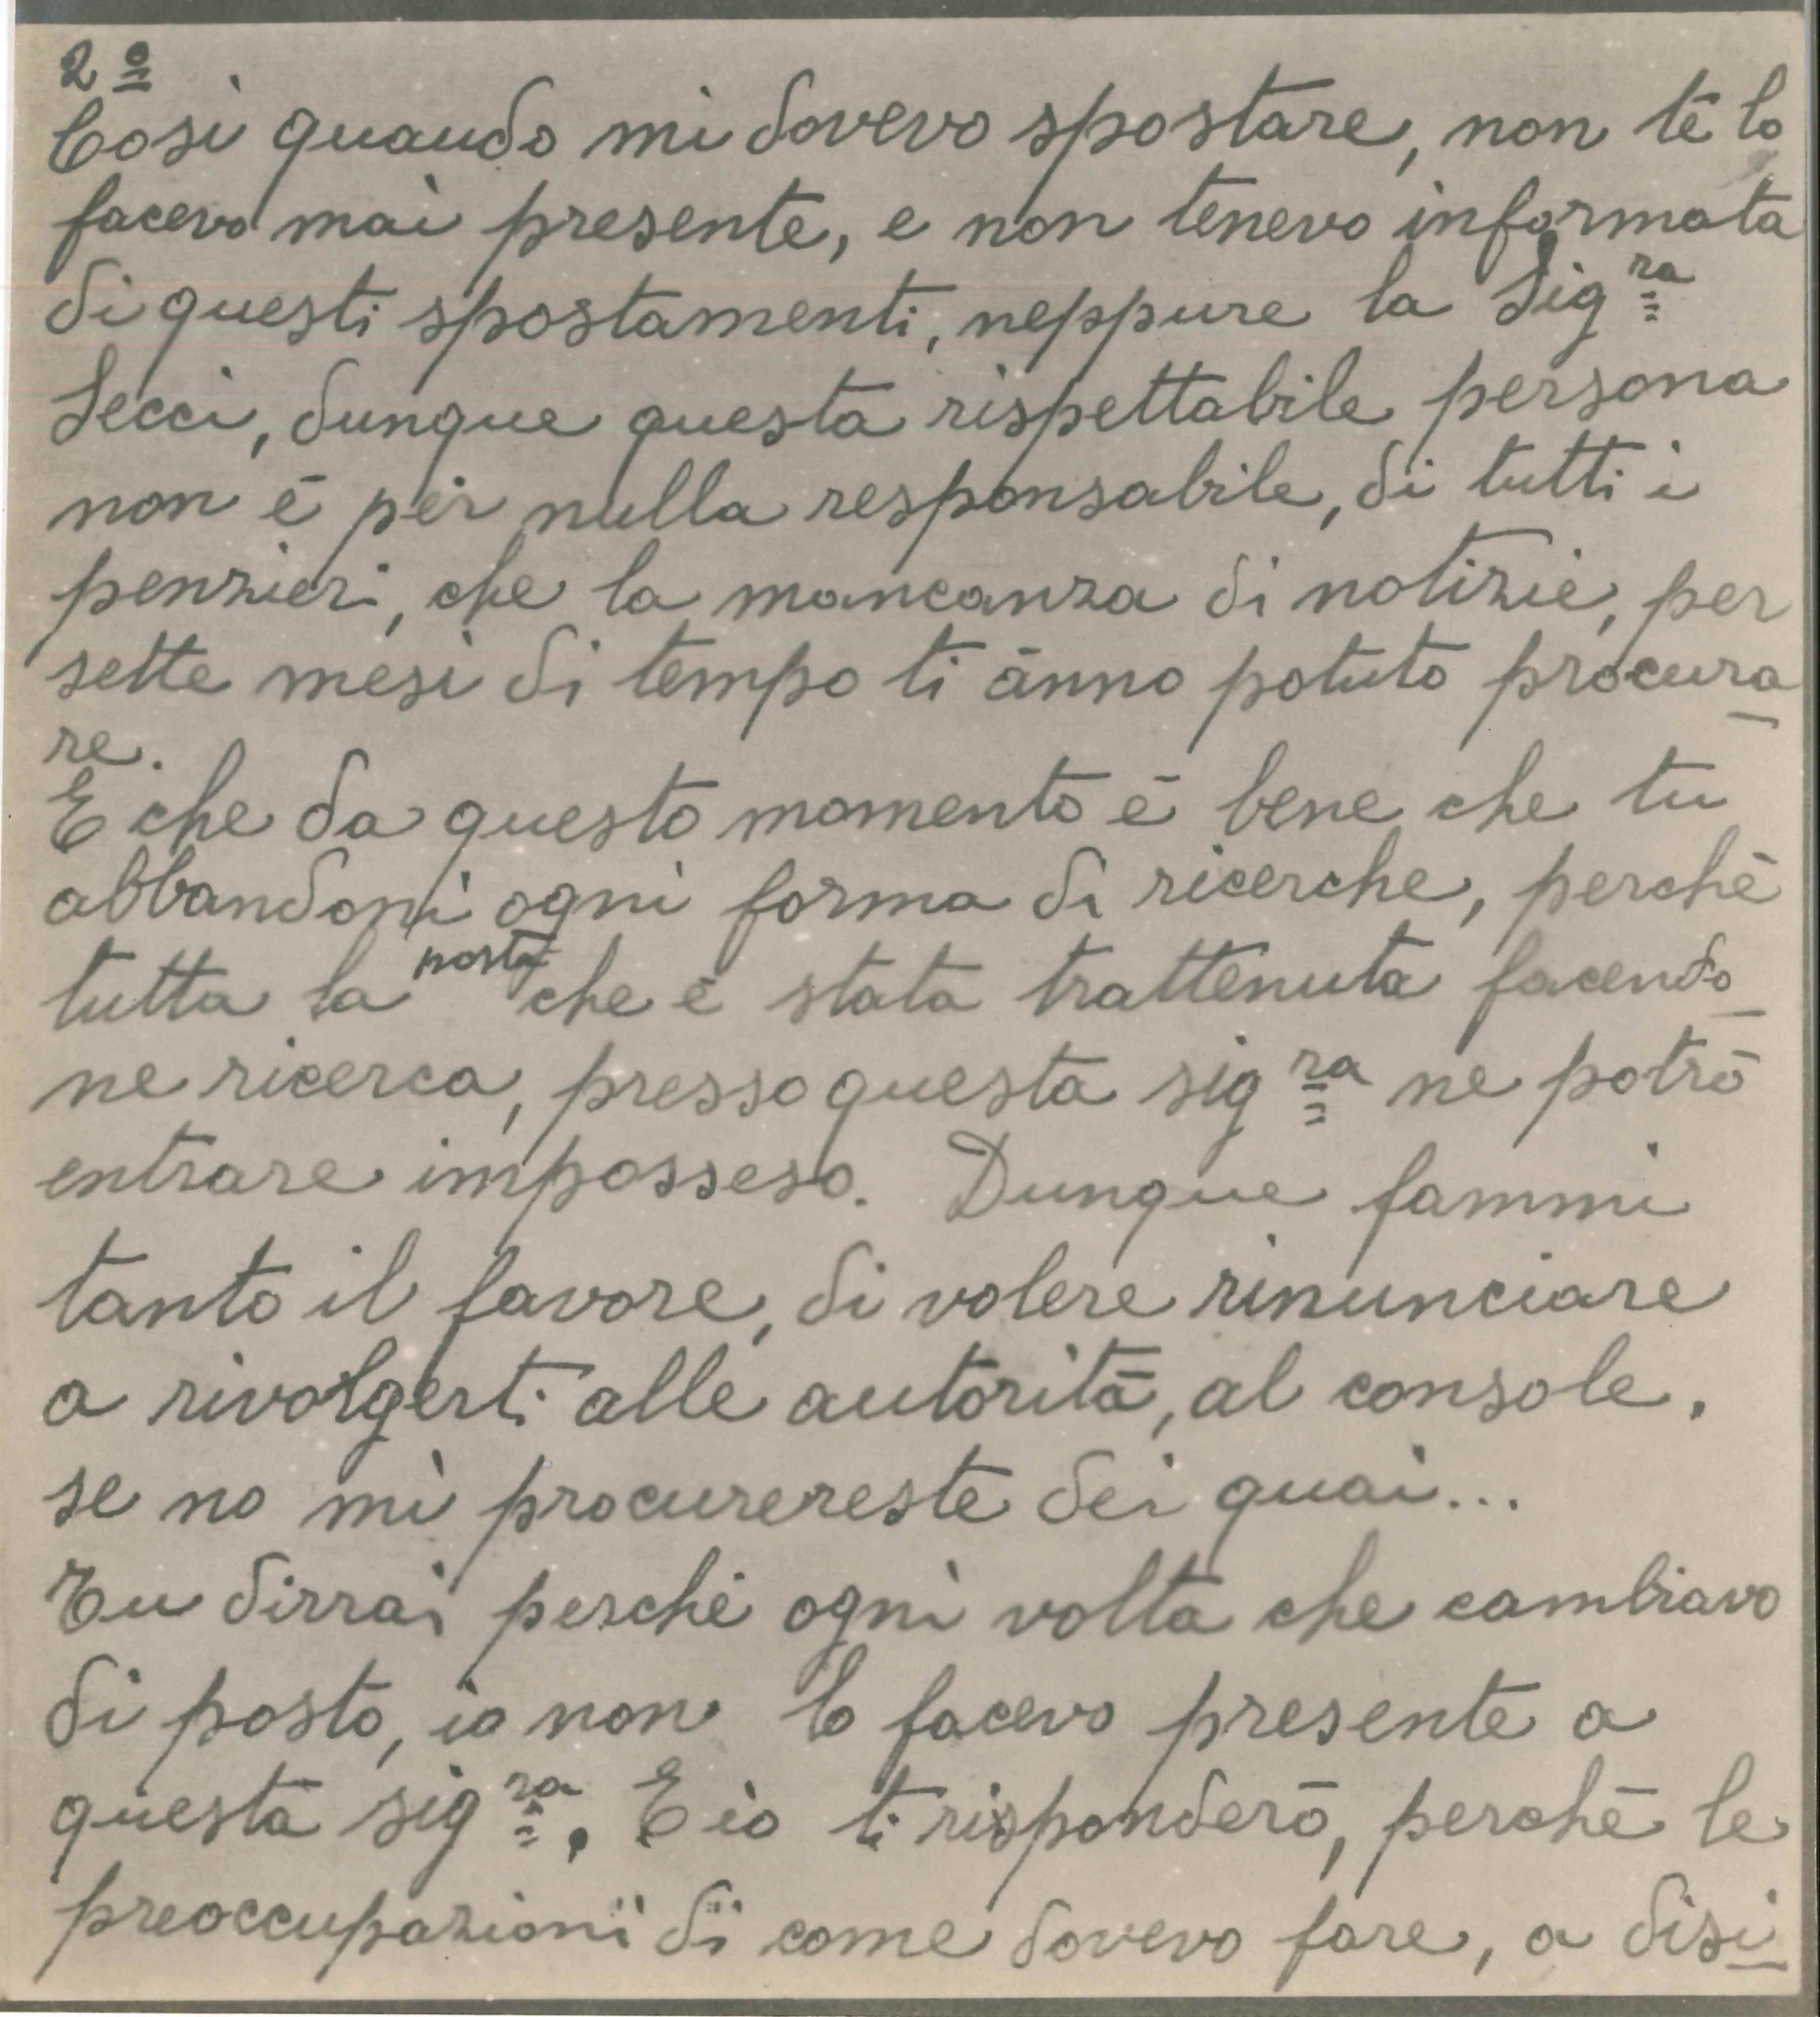 2º
Così quando mi dovevo spostare, non tē lo
facevo mai presente, e non tenevo informata
di questi spostamenti, neppure la Sigra
Secci, dunque questa rispettabile persona
non ē per nulla responsabile, di tutti i
penzieri, che la mancanza di notizie, per
sette mesi di tempo ti ānno potuto procura_
re.
E che da questo momento ē bene che tu
abbandoni ogni forma di ricerche, perchē
tutta la posta che ē stata trattenuta facendo_
ne ricerca, presso questa sigra ne potrō
entrare impossesso. Dunque fammi
tanto il favore, di volere rinunciare
a rivolgerti alle autoritā, al console,
se no mi procurereste dei guai...
Tu dirrai perchē ogni volta che cambiavo
di posto, io non lo facevo presente a
questa sigra. E io ti risponderō, perchē le
preoccupazioni di come dovevo fare, a disi_